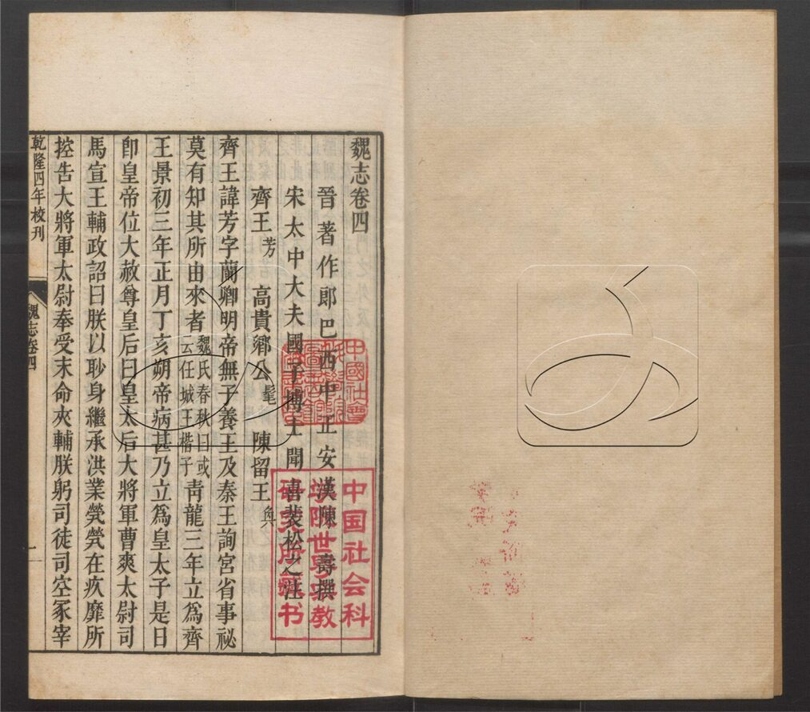 魏志卷四
晉著作郎巴西中正安漢陳壽撰
宋太中大夫國子博士聞喜裴松之注
齊王芳 高貴鄉公髦 陳留王奐
齊王諱芳字蘭卿明帝無子養王及秦王詢宮省事祕
莫有知其所由來者魏氏春秋曰或云任城王楷子青龍三年立爲齊
王景初三年正月丁亥朔帝病甚乃立爲皇太子是日
卽皇帝位大赦尊皇后曰皇太后大將軍曹爽太尉司
馬宣王輔政詔曰朕以眇身繼承洪業煢煢在疚靡所
控告大將軍太尉奉受末命夾輔朕躬司徒司空冢宰
乾隆四年校刊
魏志卷四
一
中国社会科
学院世界宗教
研究所藏书